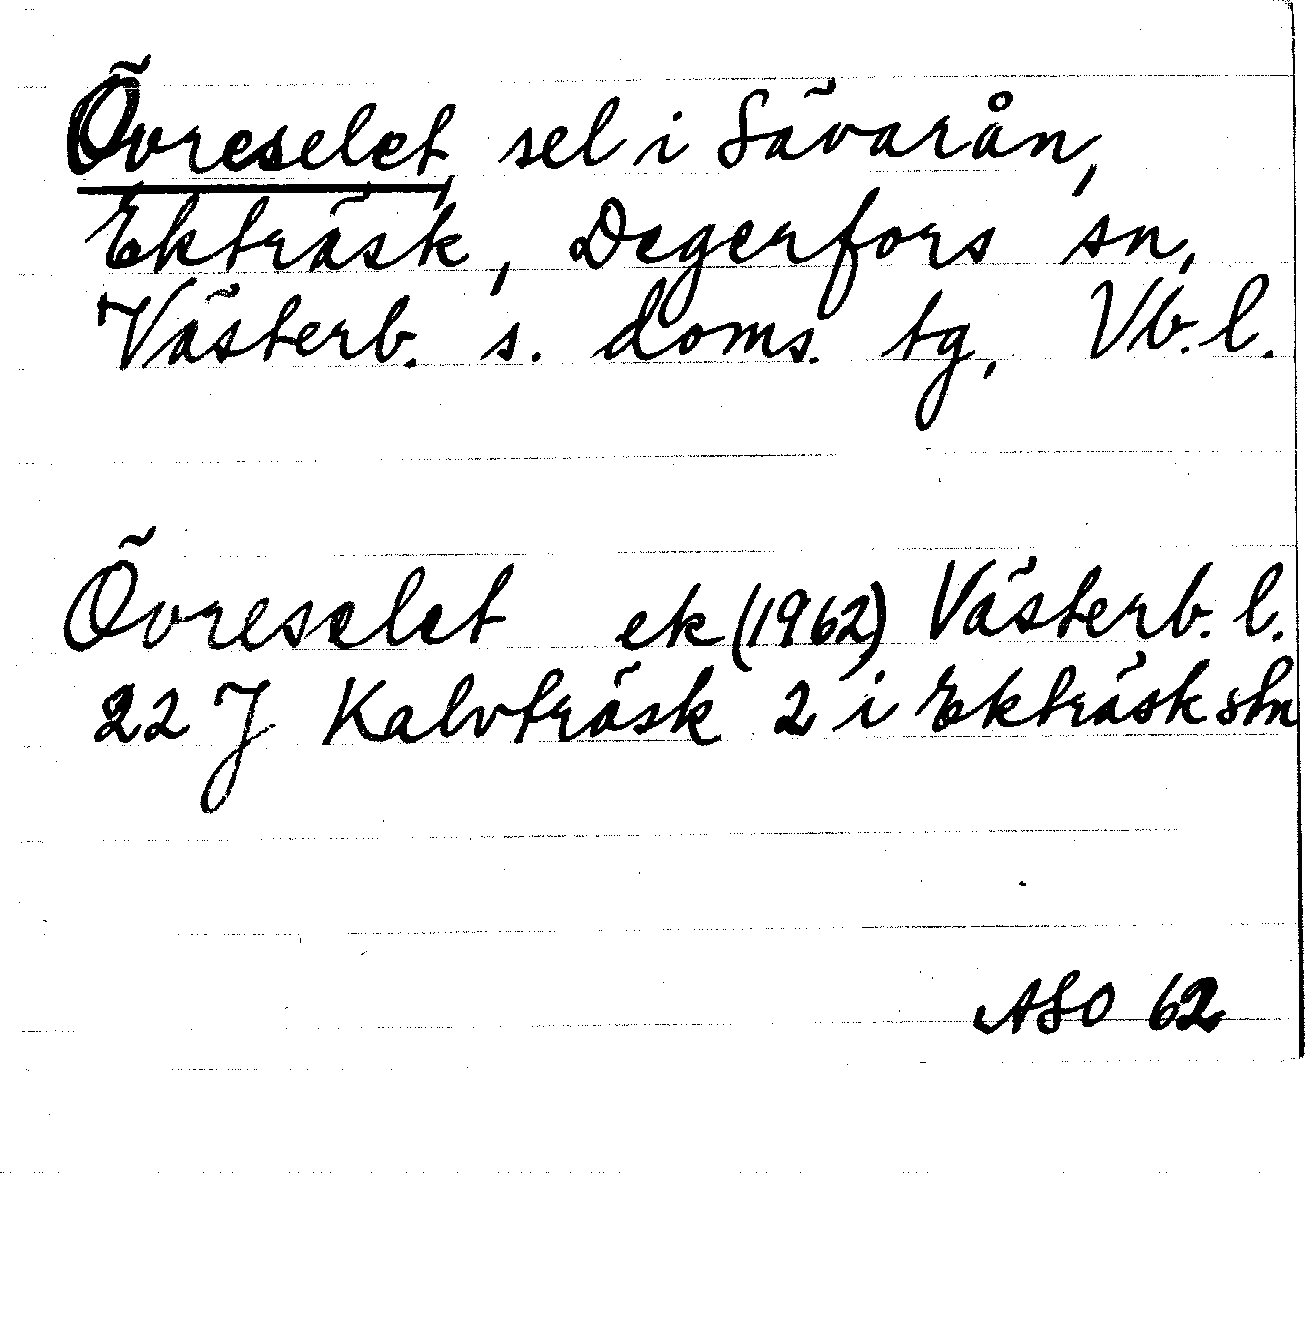 Övreselet, sel i Sävarån,
Ekträsk, Degerfors sn,
Västerb. s. doms. tg, Vb. l.
Övreselet ek (1962) Västerb. l.
22 J Kalvträsk 2 i Ekträsk stn
ASO 62